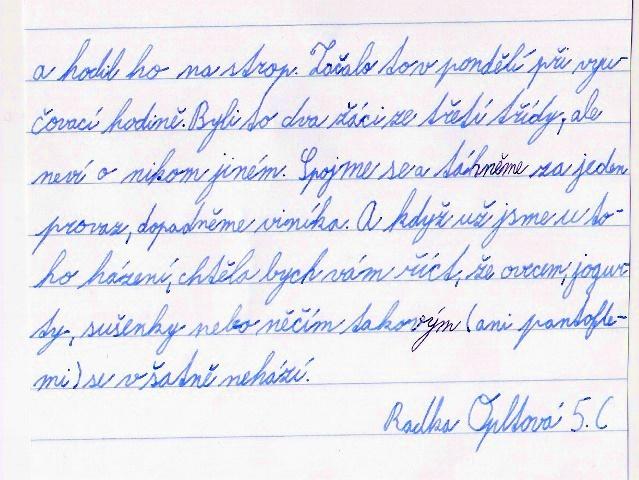 a hodil ho na strop. Začalo to v pondělí při vyu-
čovací hodině. Byli to dva žáci ze třetí třídy, ale
neví o nikom jiném. Spojme se a táhněme za jeden
provaz, dopadněme viníka. A když už jsme u to-
ho házení, chtěla bych vám říct, že ovocem, jogur-
ty, sušenky nebo něčím takovým (ani pantofle-
mi) se v šatně nehází.
Radka Opltová 5.C